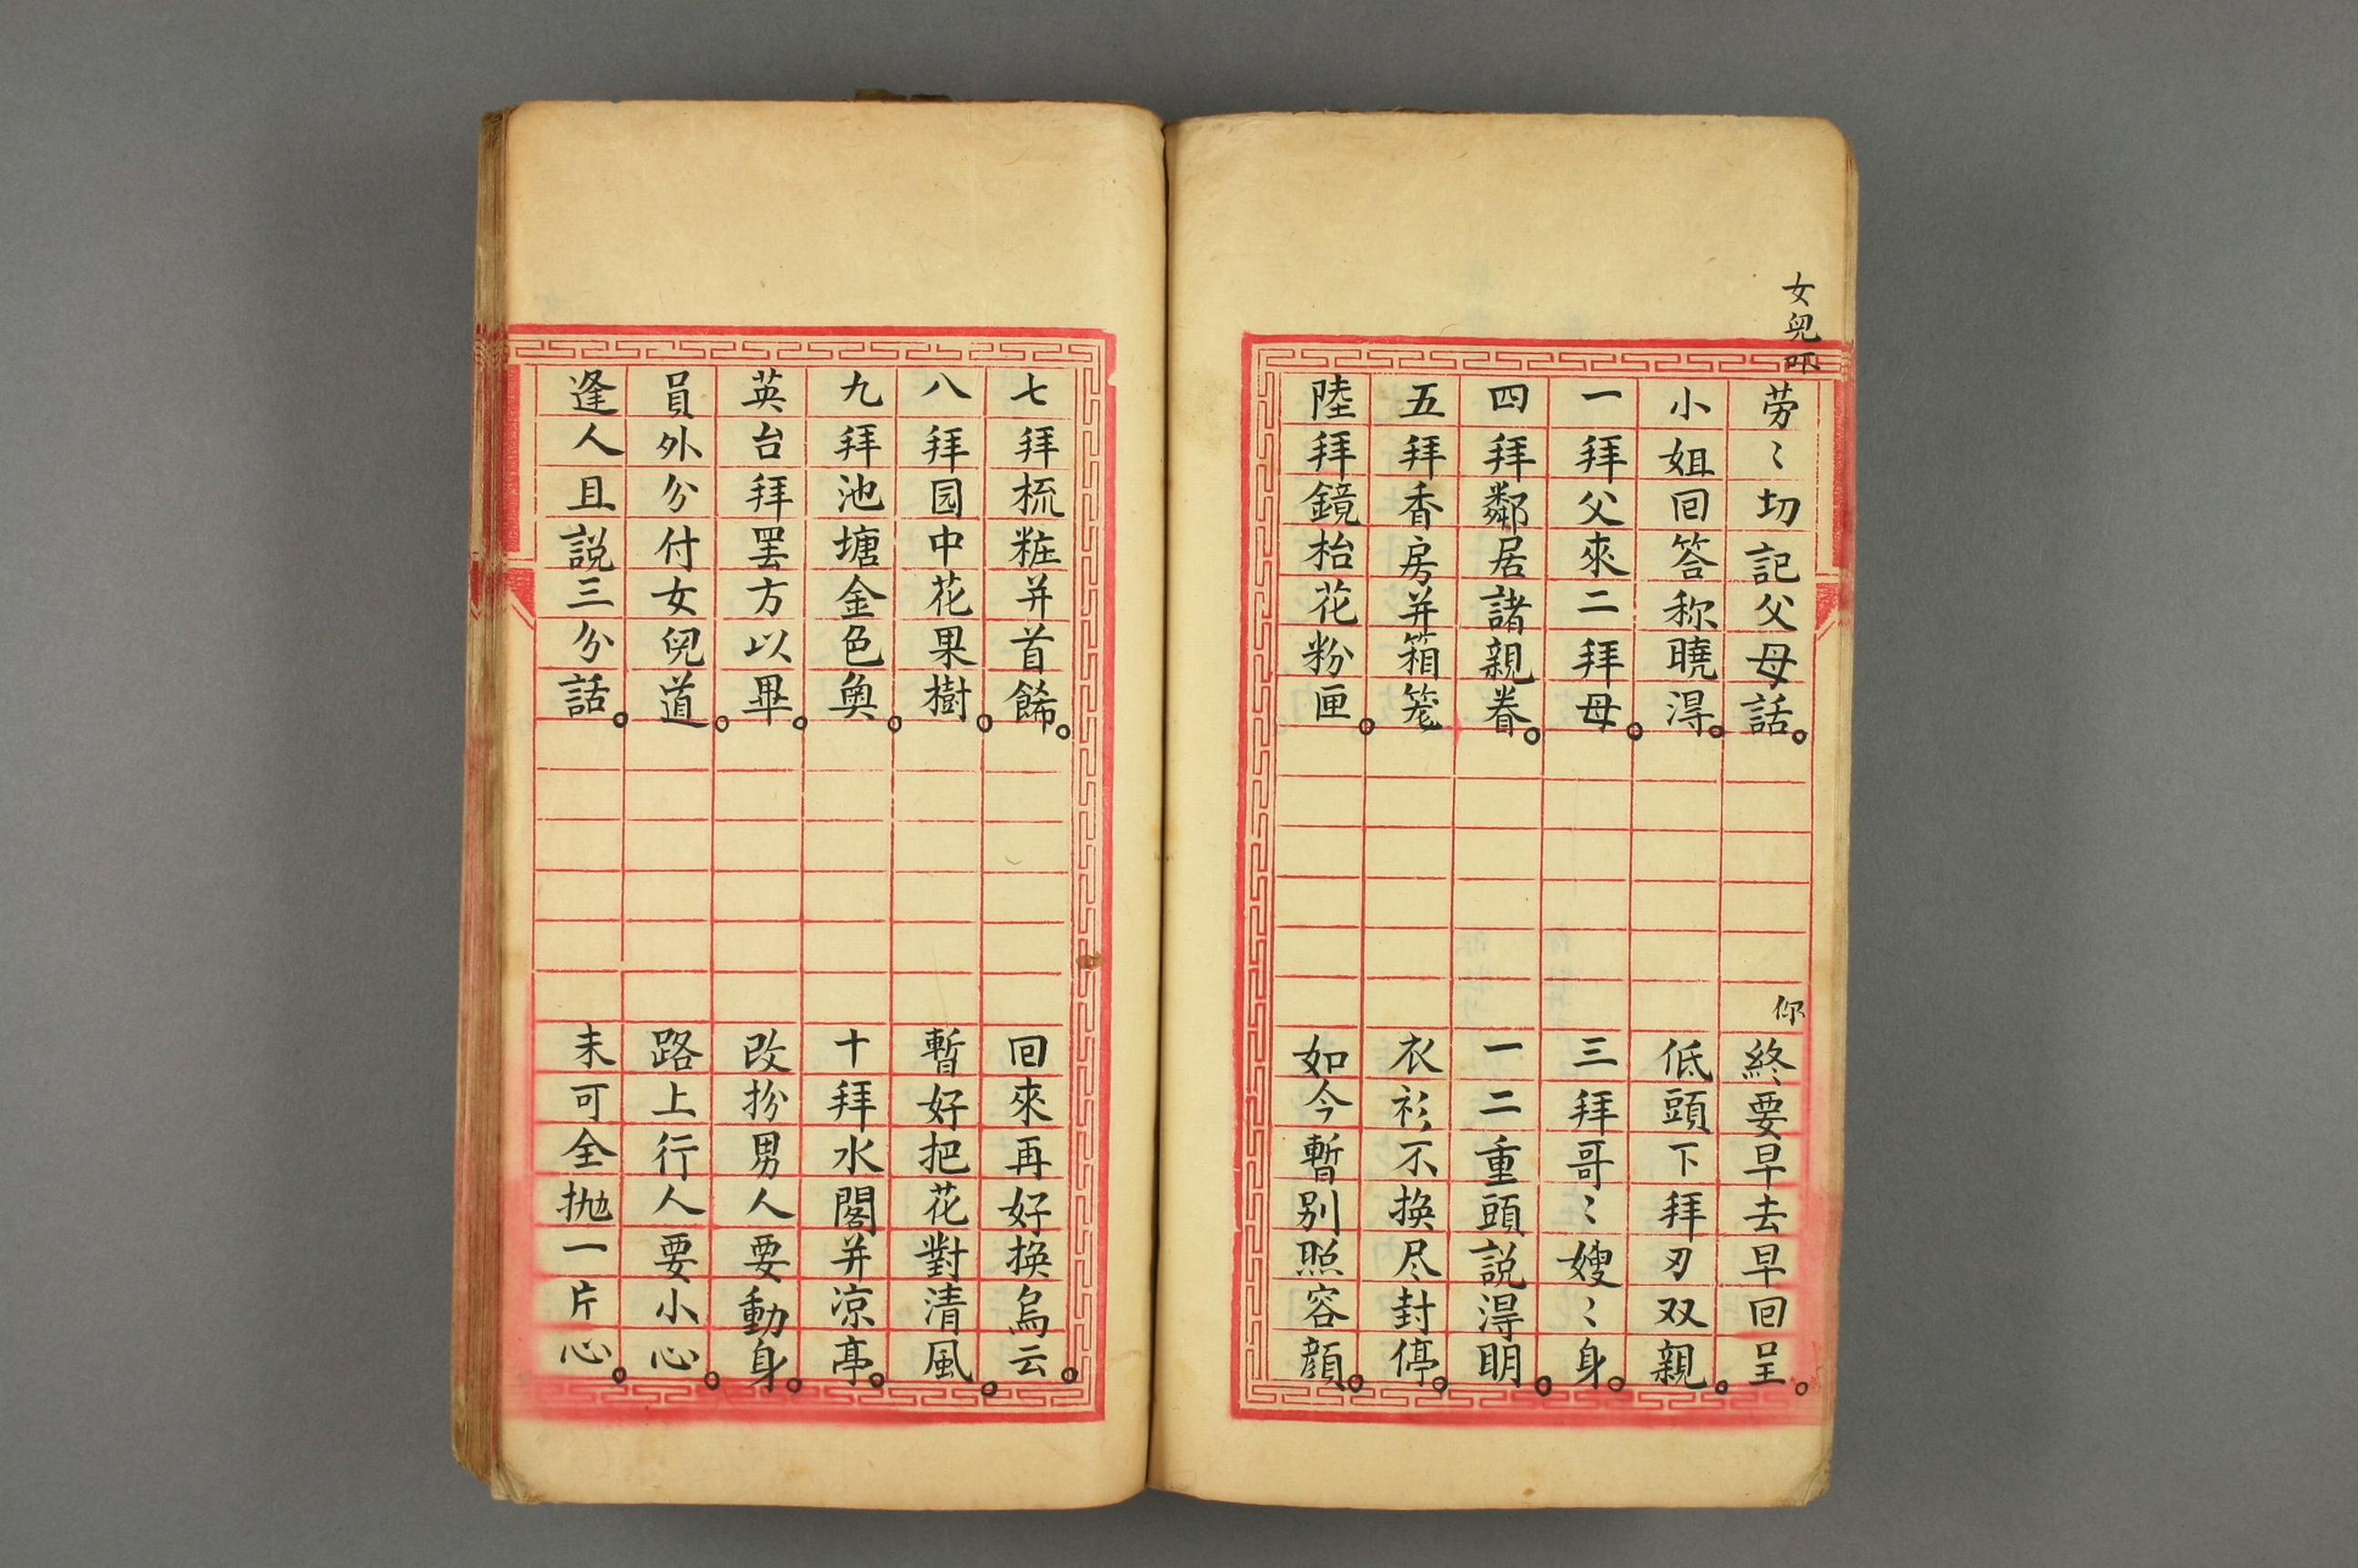 女兒
劳〻切記父母話。你終要早去早回呈。
小姐回答称曉淂。低頭下拜刃双親。
一拜父來二拜母。三拜哥〻嫂〻身。
四拜鄰居諸親眷。一二重頭説淂明。
五拜香房并箱笼衣衫不换尽封停。
陸拜鏡枱花粉匣。如今暫别照容顔。
七拜梳粧并首餙。回來再好换烏云。
八拜园中花果樹。暫好把花對清風。
九拜池塘金色魚。十拜水閣并凉亭。
英台拜罢方以畢。改扮男人要動身。
員外分付女兒道。路上行人要小心。
逢人且説三分話。未可全抛一片心。